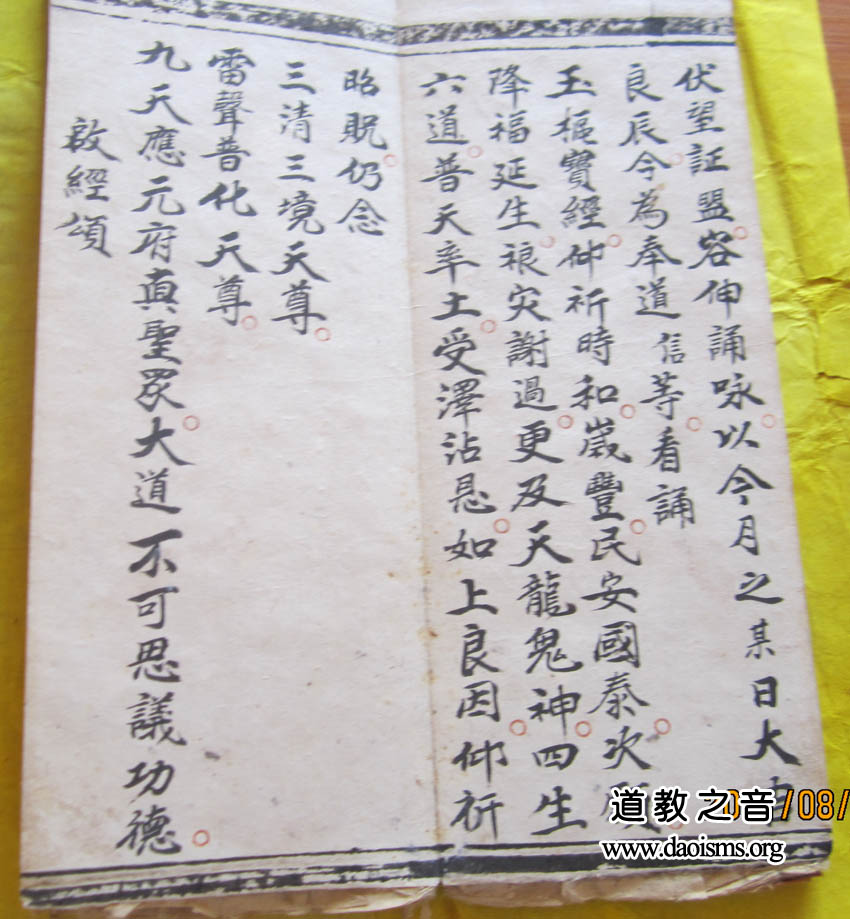 伏望証盟容伸誦咏以今月之某日大吉
良辰今為奉道信等看誦
玉樞寶經仰祈時和歲豐民安國泰次願
降福延生禳灾謝過更及天龍鬼神四生
六道普天率土受澤沾恩如上良因仰祈
昭貺仍念
三清三境天尊
雷聲普化天尊
九天應元府真聖眾大道不可思議功德
啟經頌
道教之音
/08/
www.daoisms.org